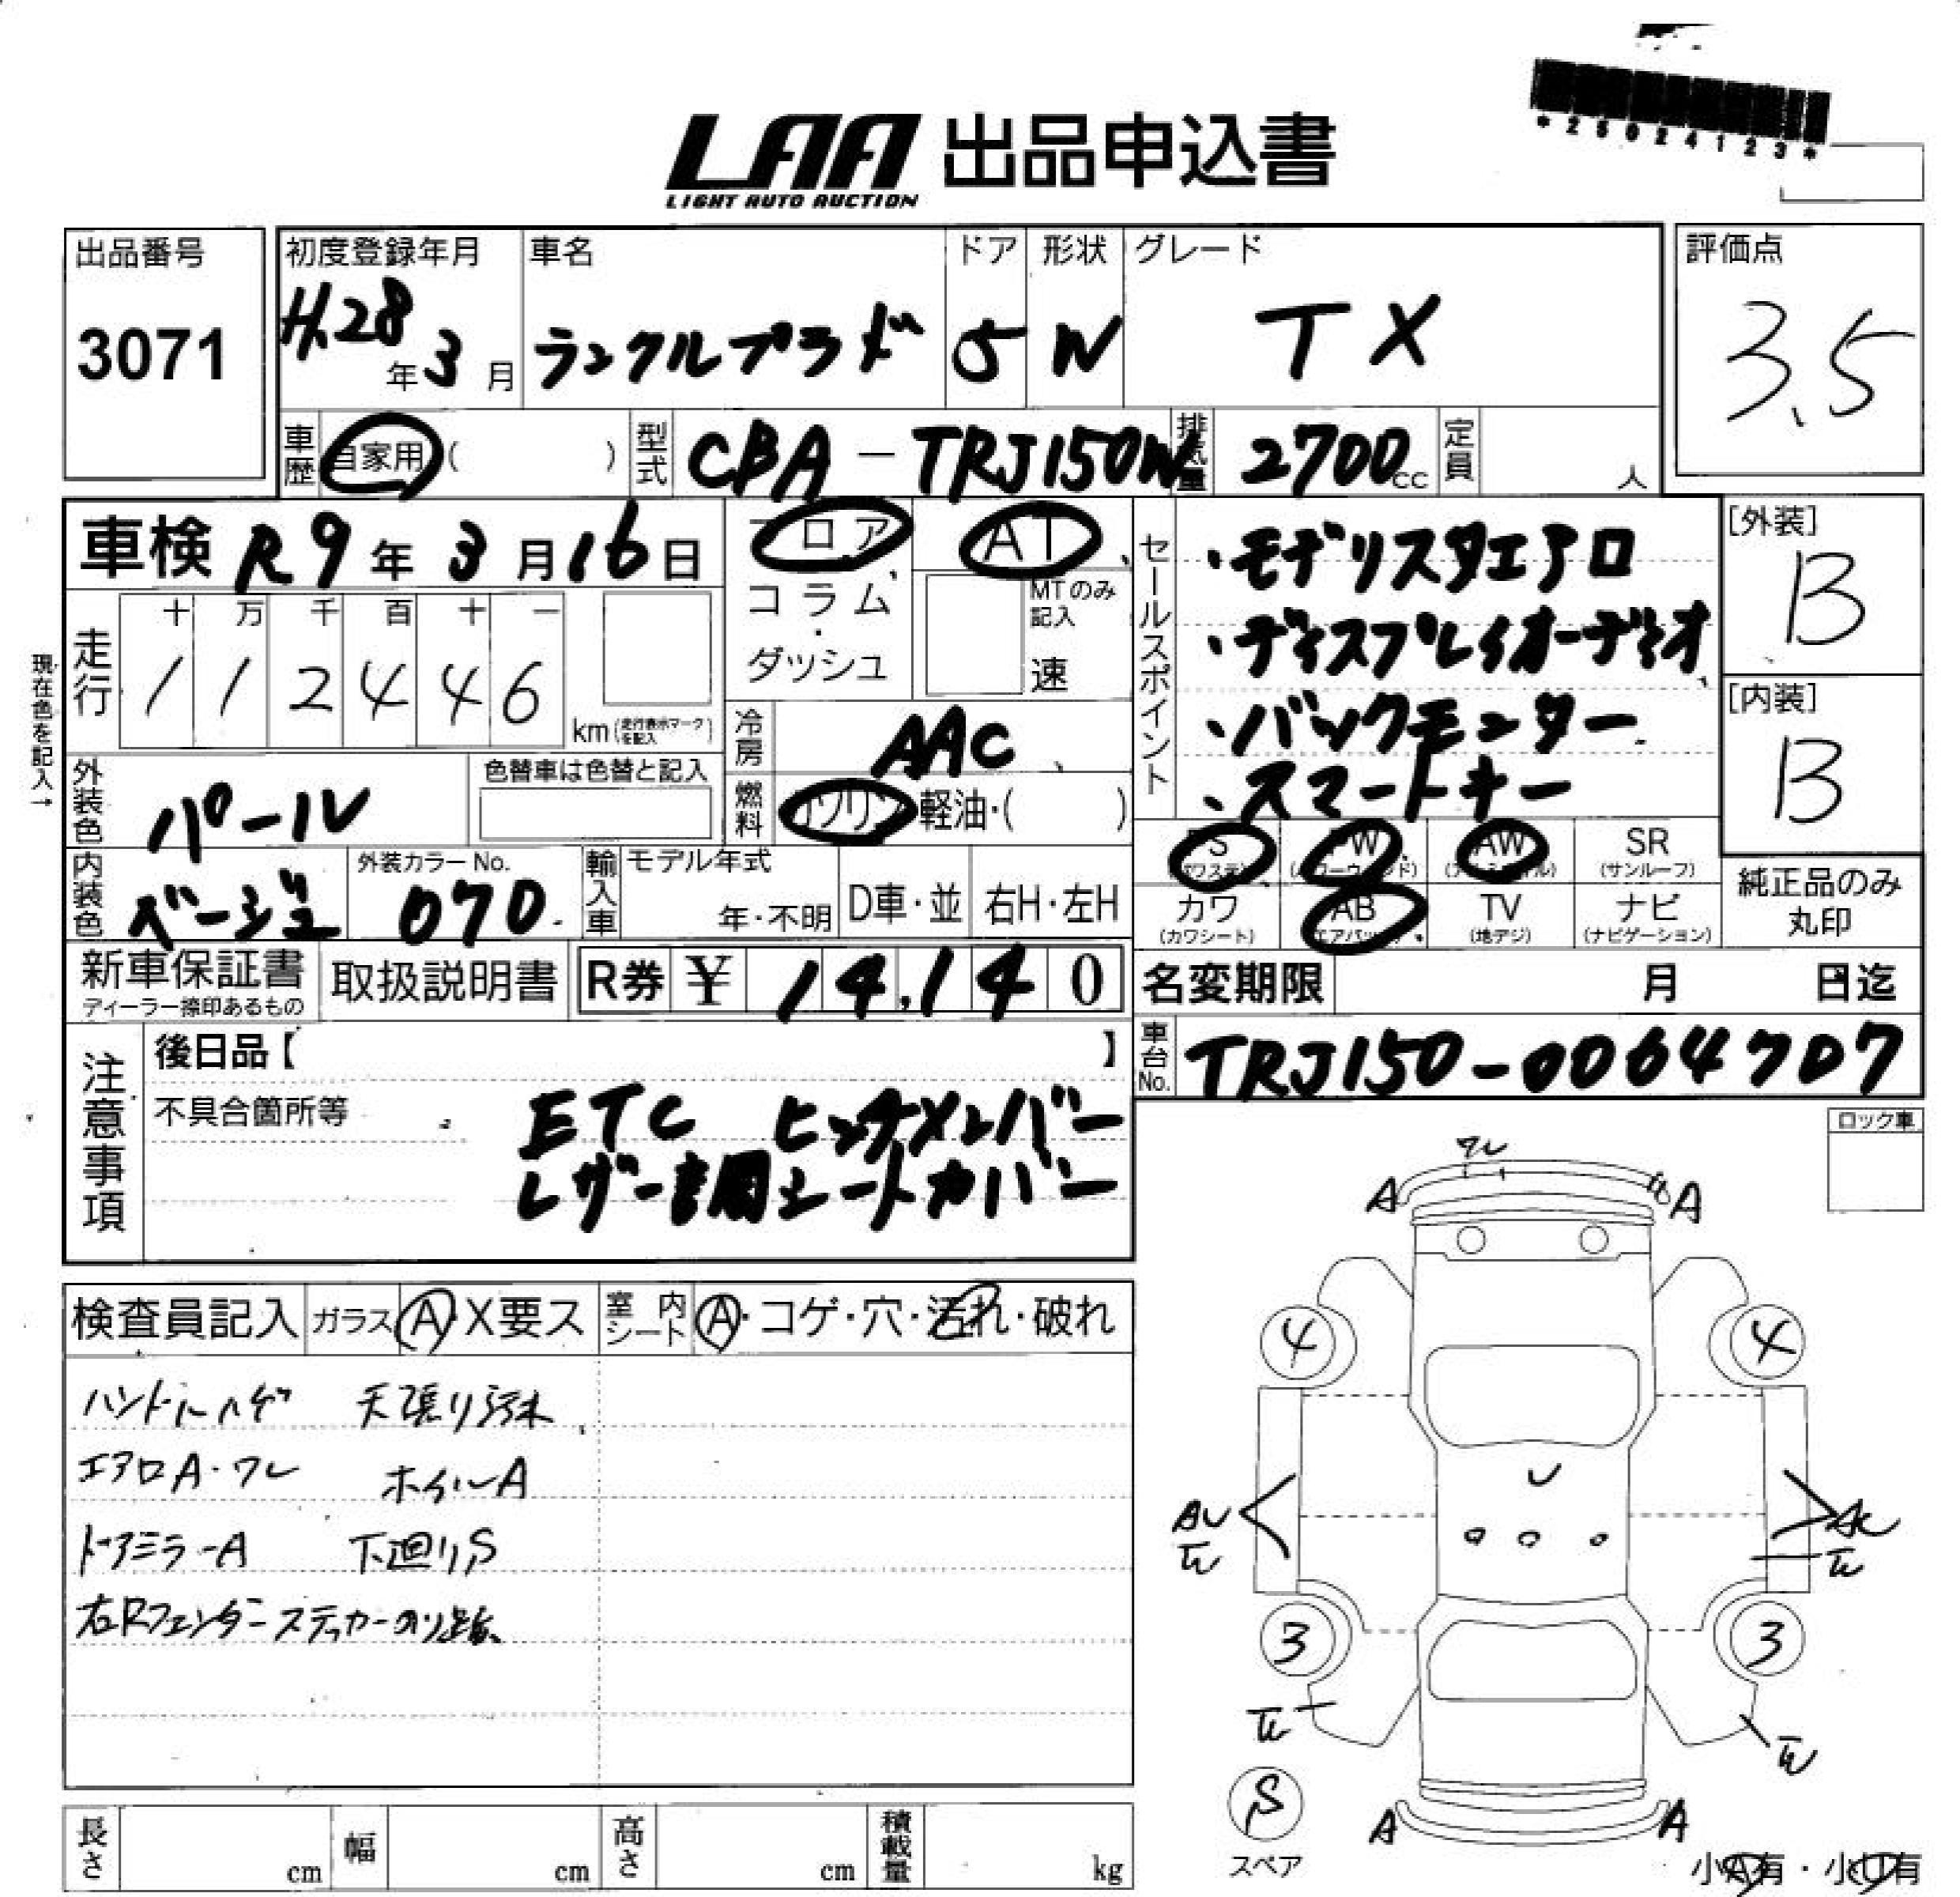 *25024123*
LAA 出品申込書
LIGHT AUTO AUCTION
出品番号 3071
初度登録年月 H.28年3月
車名 ランクルプラド
ドア 5
形状 W
グレード TX
評価点 3.5
車歴 自家用( )
型式 CBA-TRJ150W
排気量 2700cc
定員 人
車検 R9年3月16日
フロア・コラム・ダッシュ
AT
MTのみ記入 速
走行 十万千百十一
112446 km (走行表示マークを記入)
現在色を記入→
冷房 AAC
燃料 ガソリン・軽油・( )
セールスポイント
・モデリスタエアロ
・ディスプレイオーディオ
・バックモニター
・スマートキー
[外装] B
[内装] B
外装色 パール
色替車は色替と記入
内装色 ベージュ
外装カラーNo. 070
輸入車 モデル年式 年・不明 D車・並 右H・左H
PS (パワステ) PW (パワーウィンド) AW (アルミホイル) SR (サンルーフ)
カワ (カワシート) AB (エアバック) TV (地デジ) ナビ (ナビゲーション)
純正品のみ丸印
新車保証書 ディーラー捺印あるもの
取扱説明書
R券 ¥ 14,140
名変期限 月 日迄
車台No. TRJ150-0064707
注意事項
後日品【 】
不具合箇所等
ETC ヒッチメンバー
レザー専用シートカバー
ロック車
検査員記入 ガラス A・X要ス 室内シート A・コゲ・穴・汚れ・破れ
ハンドルハゲ 天張り汚れ
エアロA・ワレ ホイルA
ドアミラーA 下廻りS
右Rフェンダーステッカーのり跡
ワレ
A A
4 4
U
AU
3 3
S
スペア
A A
小A有・小U有
長さ cm 幅 cm 高さ cm 積載量 kg